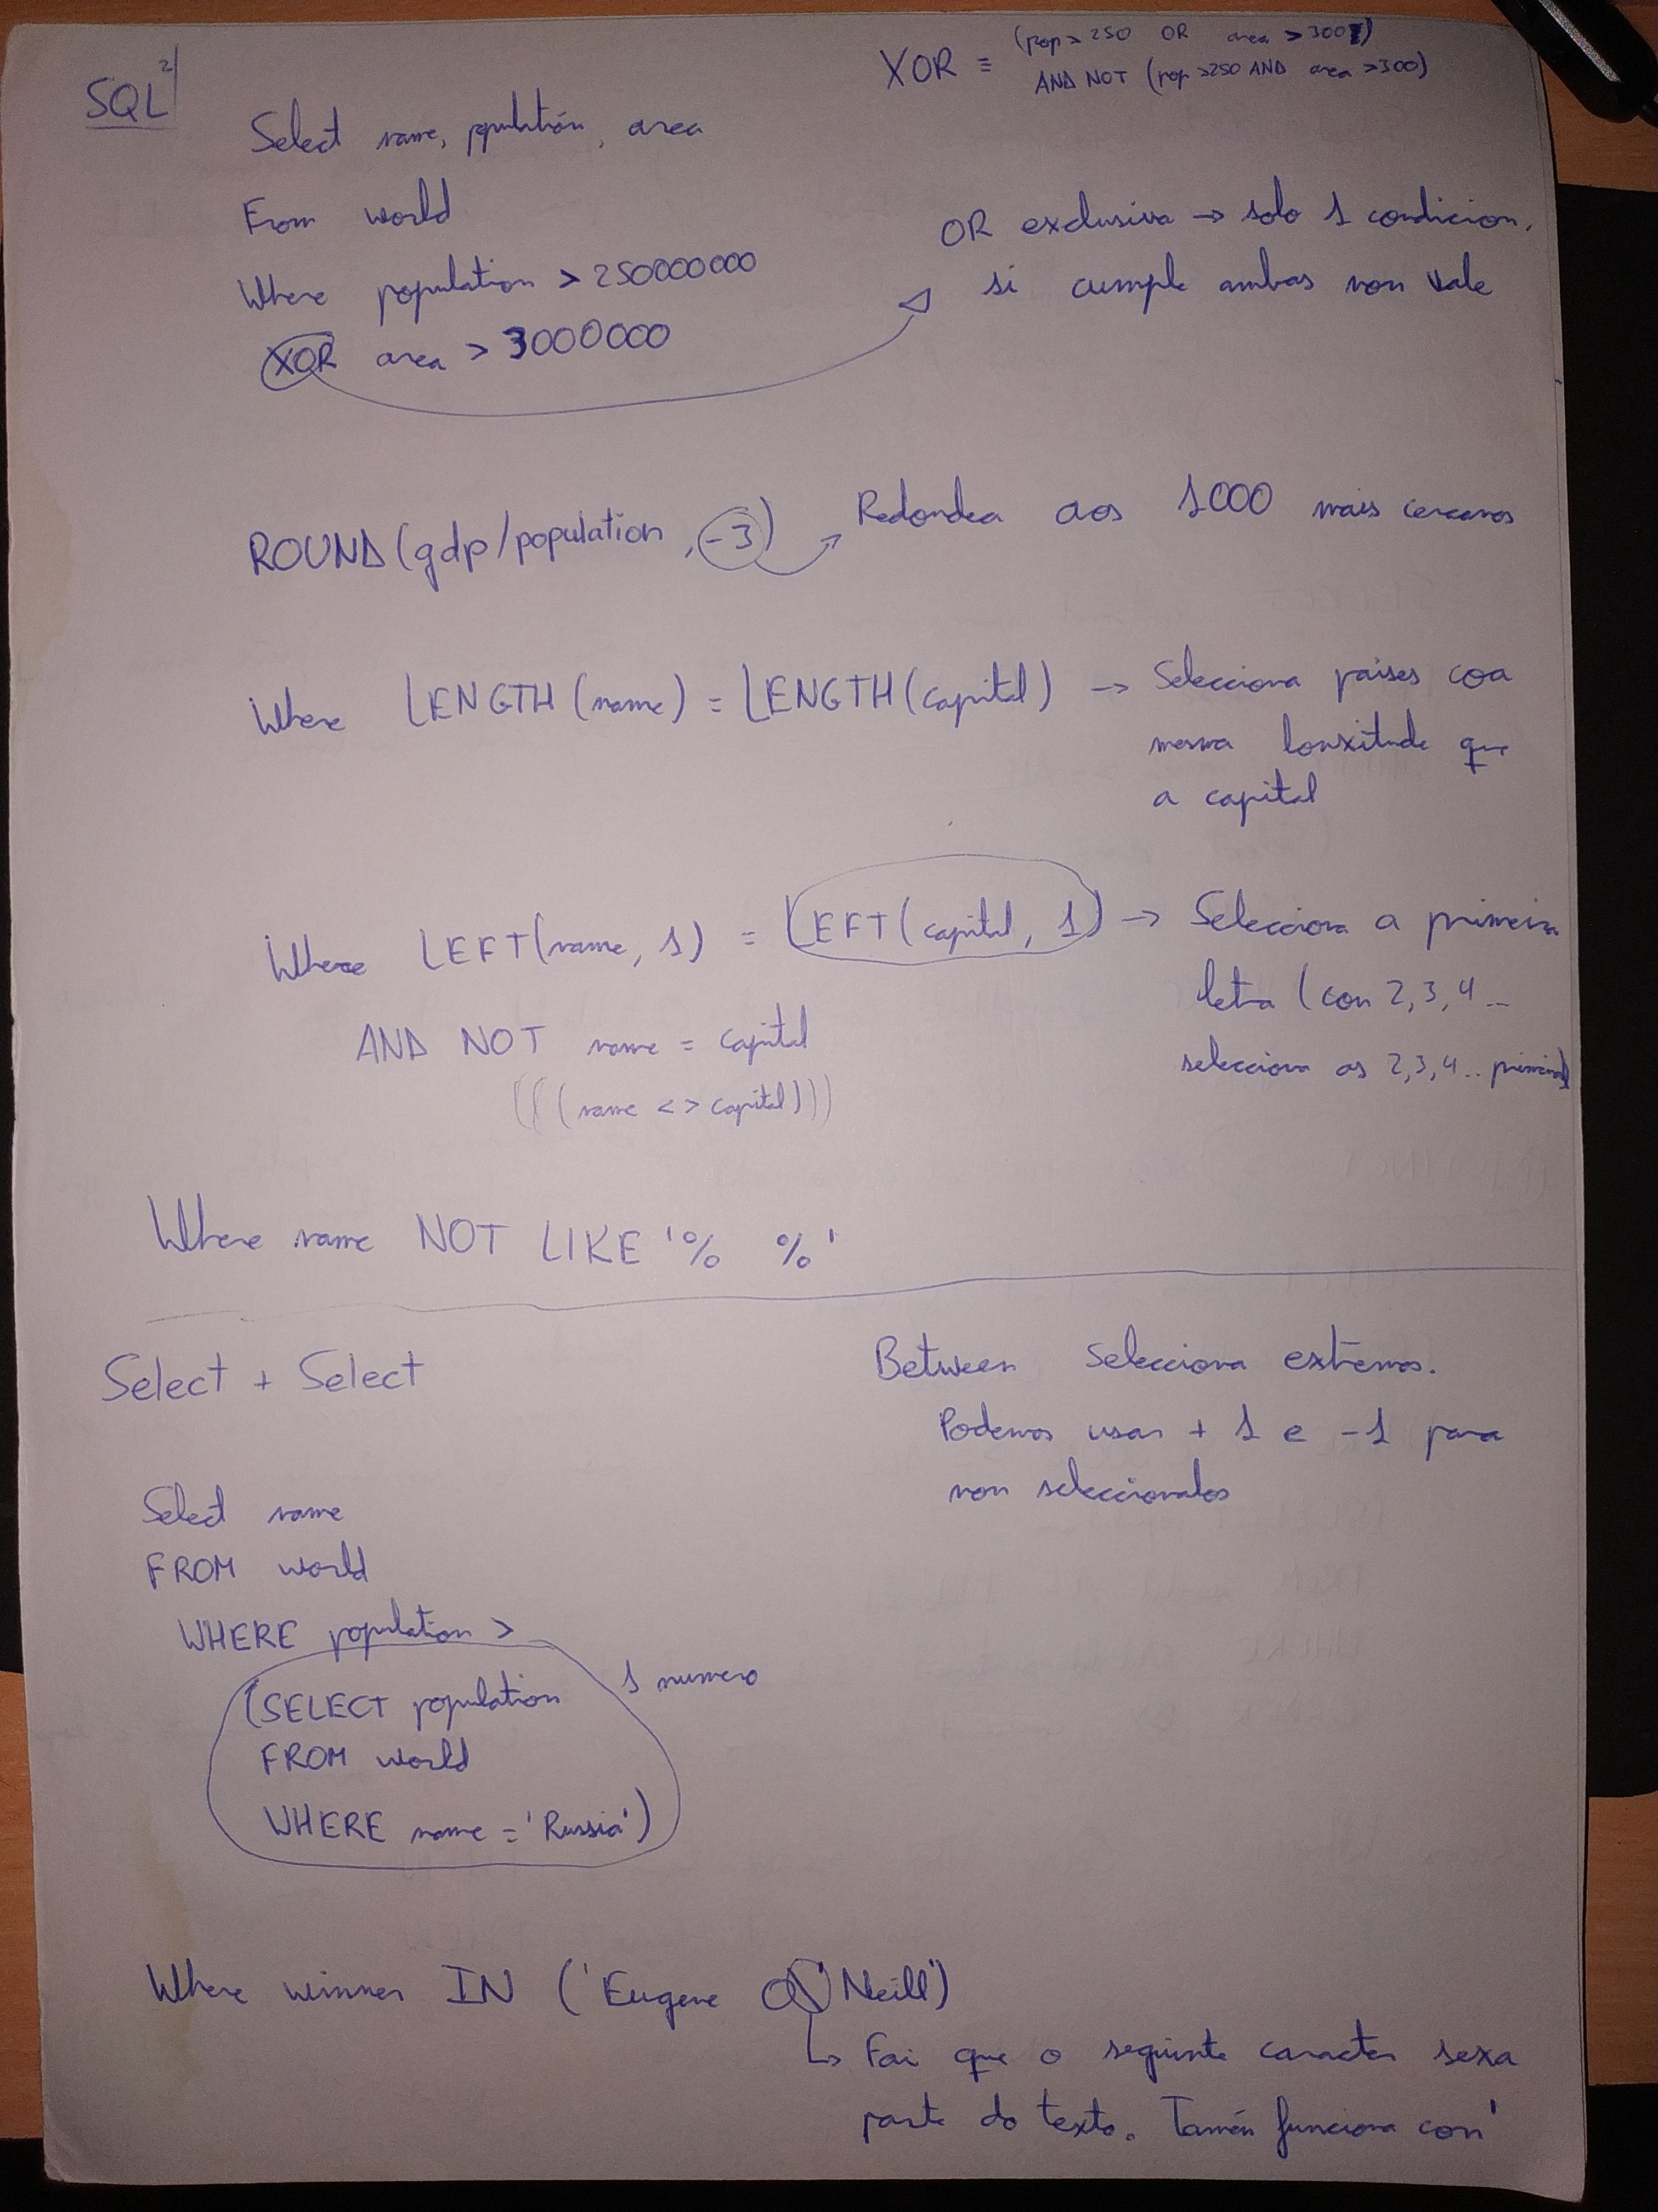 SQL 2
XOR ≡ (pop > 250 OR area > 300)
AND NOT (pop > 250 AND area > 300)
Select name, population, area
From world
Where population > 250000000
XOR area > 3000000
OR exclusiva → solo 1 condicion,
si cumple ambas non vale
ROUND(gdp/population, -3)
Redondea aos 1000 mais cercanos
Where LENGTH(name) = LENGTH(capital) → Selecciona países coa
mesma lonxitude que
a capital
Where LEFT(name, 1) = LEFT(capital, 1) → Selecciona a primeira
letra (con 2, 3, 4 ..
selecciona as 2, 3, 4 .. primeiras)
AND NOT name = capital
(((name <> capital)))
Where name NOT LIKE '% %'
Select + Select
Select name
FROM world
WHERE population >
(SELECT population
FROM world
WHERE name = 'Russia')
1 numero
Between selecciona extremos.
Podemos usar + 1 e - 1 para
non seleccionalos
Where winner IN ('Eugene O\'Neill')
↳ Fai que o seguinte caracter sexa
parte do texto. Tamén funciona con '